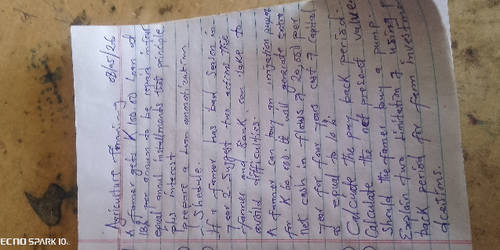 08/05/26
Agriculture Financing
A farmer gets K100 000 loan at
18% per annum to be repaid in four
equal annual instalments that principle
plus interest
prepare a loan ammortization
Shedule
If a farmer has bad season in
year 2 suggest two actions the
farmer and bank can take to
avoid difficulties
A farmer can buy an irrigation pump
for K
net cash in flows of 20,000 per
year for four years cost of capital
is equal to
Calculate the pay back period
Calculate the net present value
Should the farmer buy a pump.
Explain two limitation of using pay
back period for farm investment
decisions.
TECNO SPARK 10